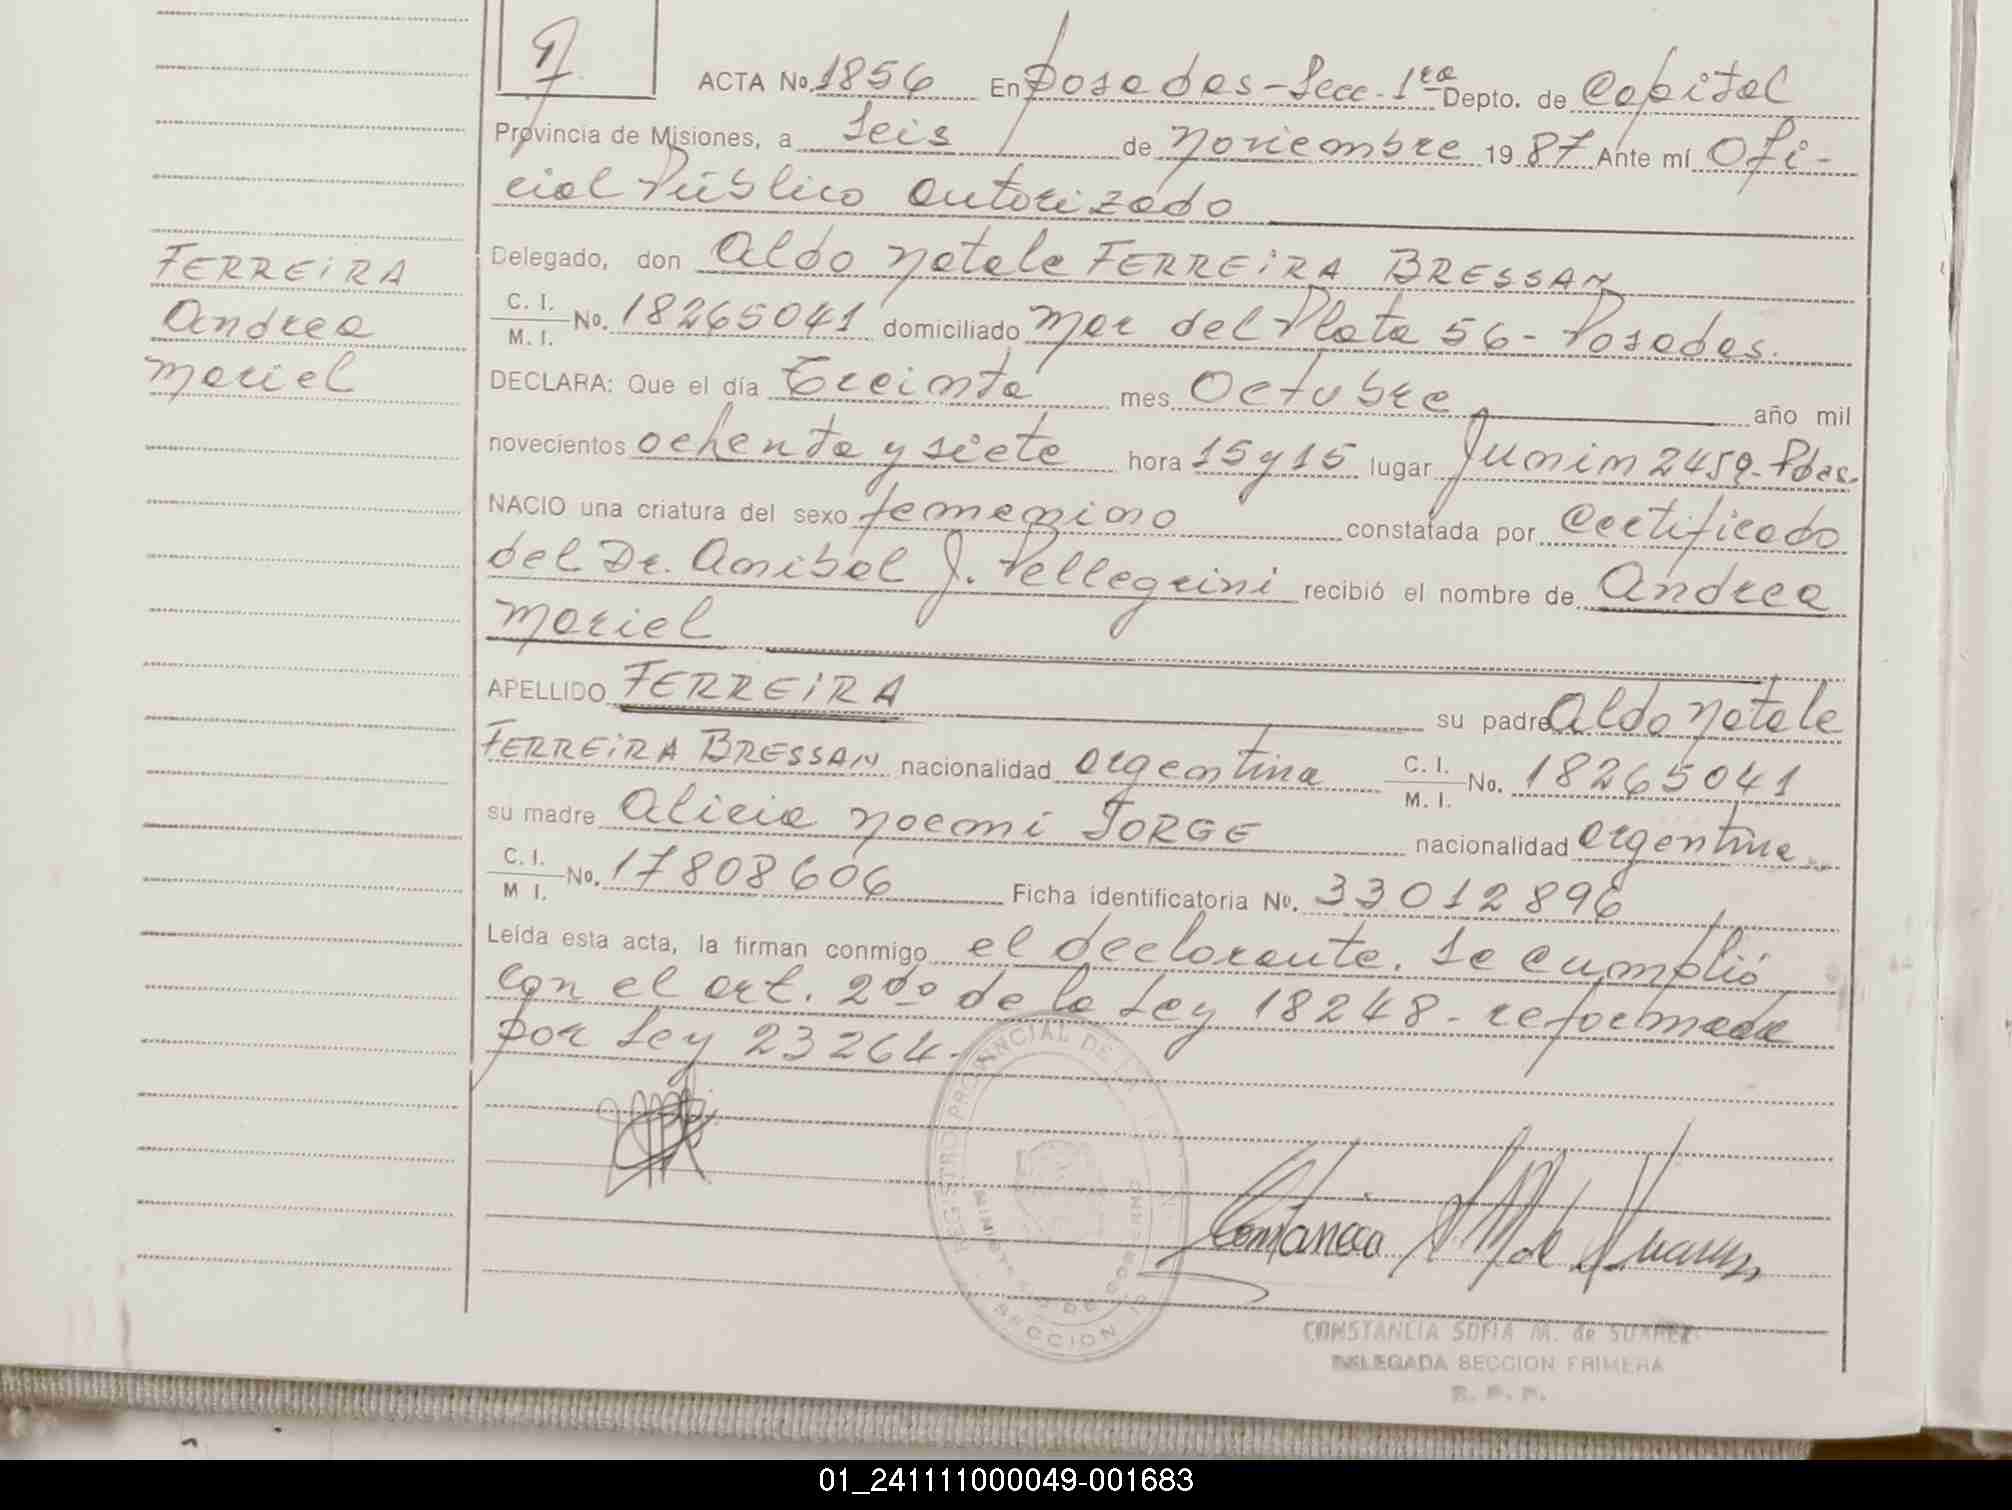 ACTA No. 1856 En Posadas - Secc. 1ra Depto. de Capital
Provincia de Misiones, a Seis de Noviembre 19 87 Ante mí Ofi-
cial Público autorizado
Delegado, don Aldo Natale FERREIRA BRESSAN
C. I. M. I. No. 18265041 domiciliado Mar del Plata 56 - Posadas.
DECLARA: Que el día Treinta mes Octubre año mil
novecientos ochenta y siete hora 15 y 15 lugar Junín 2459 - Pdas.
NACIO una criatura del sexo femenino constatada por Certificado
del Dr. Anibal J. Pellegrini recibió el nombre de Andrea
Mariel
APELLIDO FERREIRA su padre Aldo Natale
FERREIRA BRESSAN nacionalidad argentina C. I. M. I. No. 18265041
su madre Alicia Noemi JORGE nacionalidad argentina
C. I. M I. No. 17808606 Ficha identificatoria No. 33012896
Leída esta acta, la firman conmigo el declarante. Se cumplió
con el art. 2do de la Ley 18248 - reformada
por Ley 23264.
FERREIRA
Andrea
Mariel
REGISTRO PROVINCIAL DE
MINISTERIO DE GOBIERNO
SECCION
Constancia S M de Suarez
CONSTANCIA SOFIA M. de SUAREZ
DELEGADA SECCION PRIMERA
R. P. P.
01_241111000049-001683